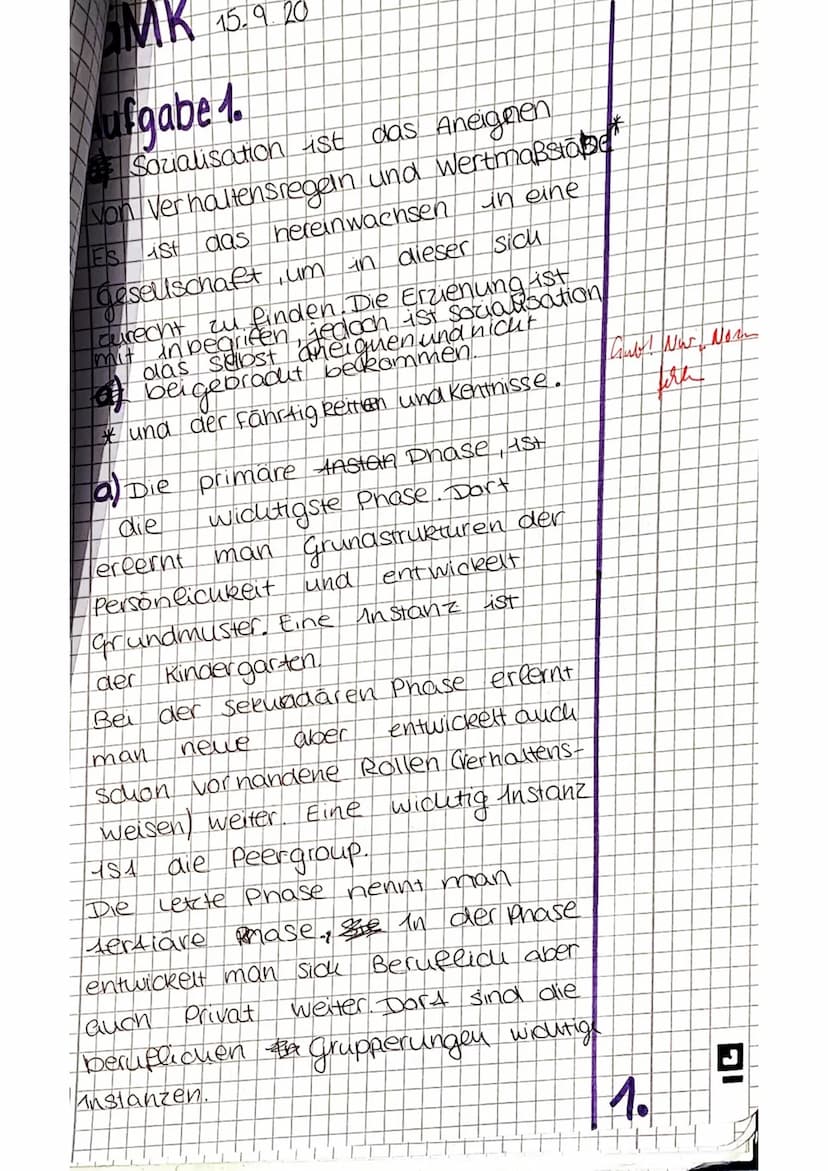 GMK 15.9.20
Aufgabe 1.
Sozialisation ist das Aneignen
von Verhaltensregeln und Wertmaßstäbe*
Es ist das hereinwachsen in eine
gesellschaft, um in dieser sich
zurecht zu finden. Die Erziehung ist
mit inbegrifen, jedoch ist Sozialisation
das selbst aneignen und nicht
beigebracht bekommen.
* und der Fährtigkeiten und kentnisse.
Gut! Nur
a) Die primäre Phase, ist
die wichtigste Phase. Dort
erlernt man Grundstrukturen der
Persönlichkeit und entwickelt
Grundmuster. Eine Instanz ist
der Kindergarten.
Bei der sekundären Phase erlernt
man neue aber entwickelt auch
schon vorhandene Rollen (Verhaltens-
weisen) weiter. Eine wichtig Instanz
ist die Peergroup.
Die letzte Phase nennt man
tertiäre Phase, In der Phase
entwickelt man sich Beruflich aber
auch Privat weiter. Dort sind die
beruflichen Grupperungen wichtige
instanzen.
1.